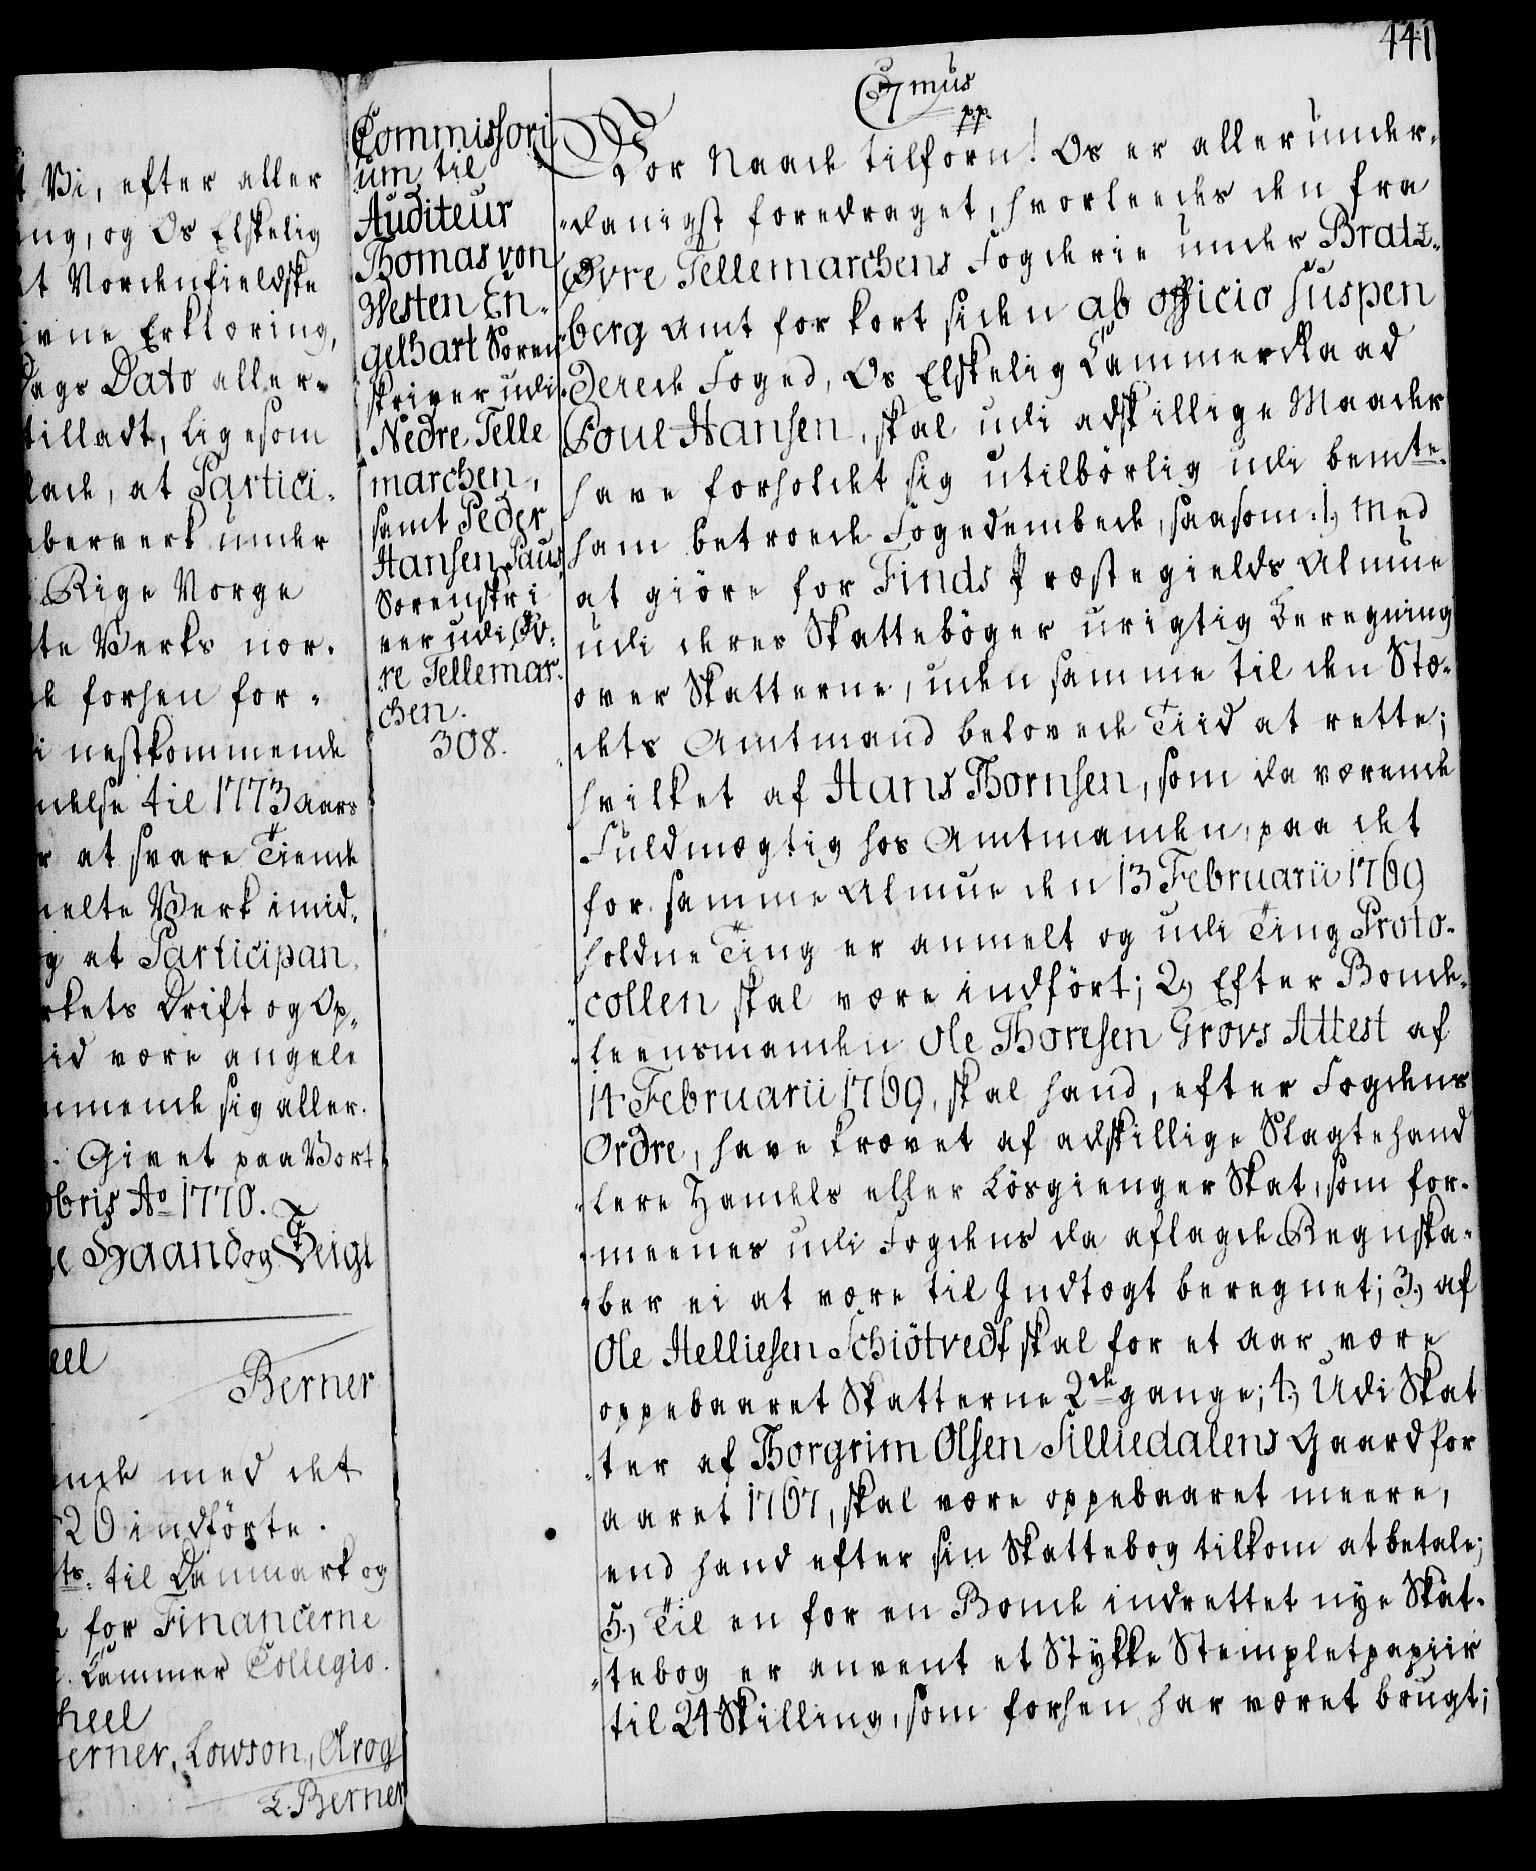 441
t Vi, efter aller
ing, og Os Elskelig
t Nordenfieldske
ivne Erklæring,
Dags Dato aller-
tilladt, Ligesom
lade, at Partici-
berverk under
Rige Norge
te Verks nor-
e forhen for-
i nestkommende
delse til 1773 aars
r at svare Tiende
melte Verk imid-
g at Participan-
rkets Drift og Op-
id være angele
mmende sig aller-
. Givet paa Vort
bris Ao 1770.
ge Haand og Seigl
eel
Berner
nde med det
26 indförte.
ts: til Danmark og
e for Financerne
. Cammer Collegio.
heel
erner, Lowson, Arog
L. Berner
Commissori
um til
Auditeur
Thomas von
Westen En-
gelhart Soren
skriver udi
Nedre Telle
marchen,
samt Peder
Hansen Paus,
Sorenskri
ver udi Öv-
re Tellemar-
chen.
308.
C 7mus
pp.
Vor Naade tilforn! Os er allerunder-
danigst foredraget, hvorleedes den fra
Övre Tellemarchens Fogderie under Bratz-
berg Amt for kort siden ab officio suspen
derede Foged, Os Elskelig Cammer Raad
Poul Hansen, skal udi adskillige Maader
have forholdet sig utilbörlig udi bemte
ham betroede Fogedembede, saasom: 1, Med
at giöre for Finds Præstegields Almue
udi deres Skatteböger urigtig Beregning
over Skatterne, uden samme til den Stæ-
dets Amtmand belovede Tiid at rette;
hvilket af Hans Thornsen, som da værende
Fuldmægtig hos Amtmanden, paa det
for samme Almue den 13 Februarii 1769
holdne Ting er anmelt og udi Ting Proto-
collen skal være indfört; 2, Efter Bonde-
leensmanden Ole Thoresen Grovs Attest af
14 Februarii 1769, skal hand, efter Fogdens
Ordre, have krævet af adskillige Slagtehand
lere Handels eller Lösgienger Skat, som for-
meenes udi Fogdens da aflagde Regnska-
ber ei at være til Indtægt beregnet; 3, af
Ole Helliesen Schiötvedt skal for et Aar være
oppebaaret Skatterne 2de gange; 4, Udi Skat
ter af Thorgrim Olsen Silliedalens Gaard for
aaret 1767, skal være oppebaaret meere,
end hand efter sin Skattebog tilkom at betale;
5, Til en for en Bonde indrettet nye Skat-
tebog er anvent et Stykke Stempletpapiir
til 24 Skilling, som forhen har været brugt;